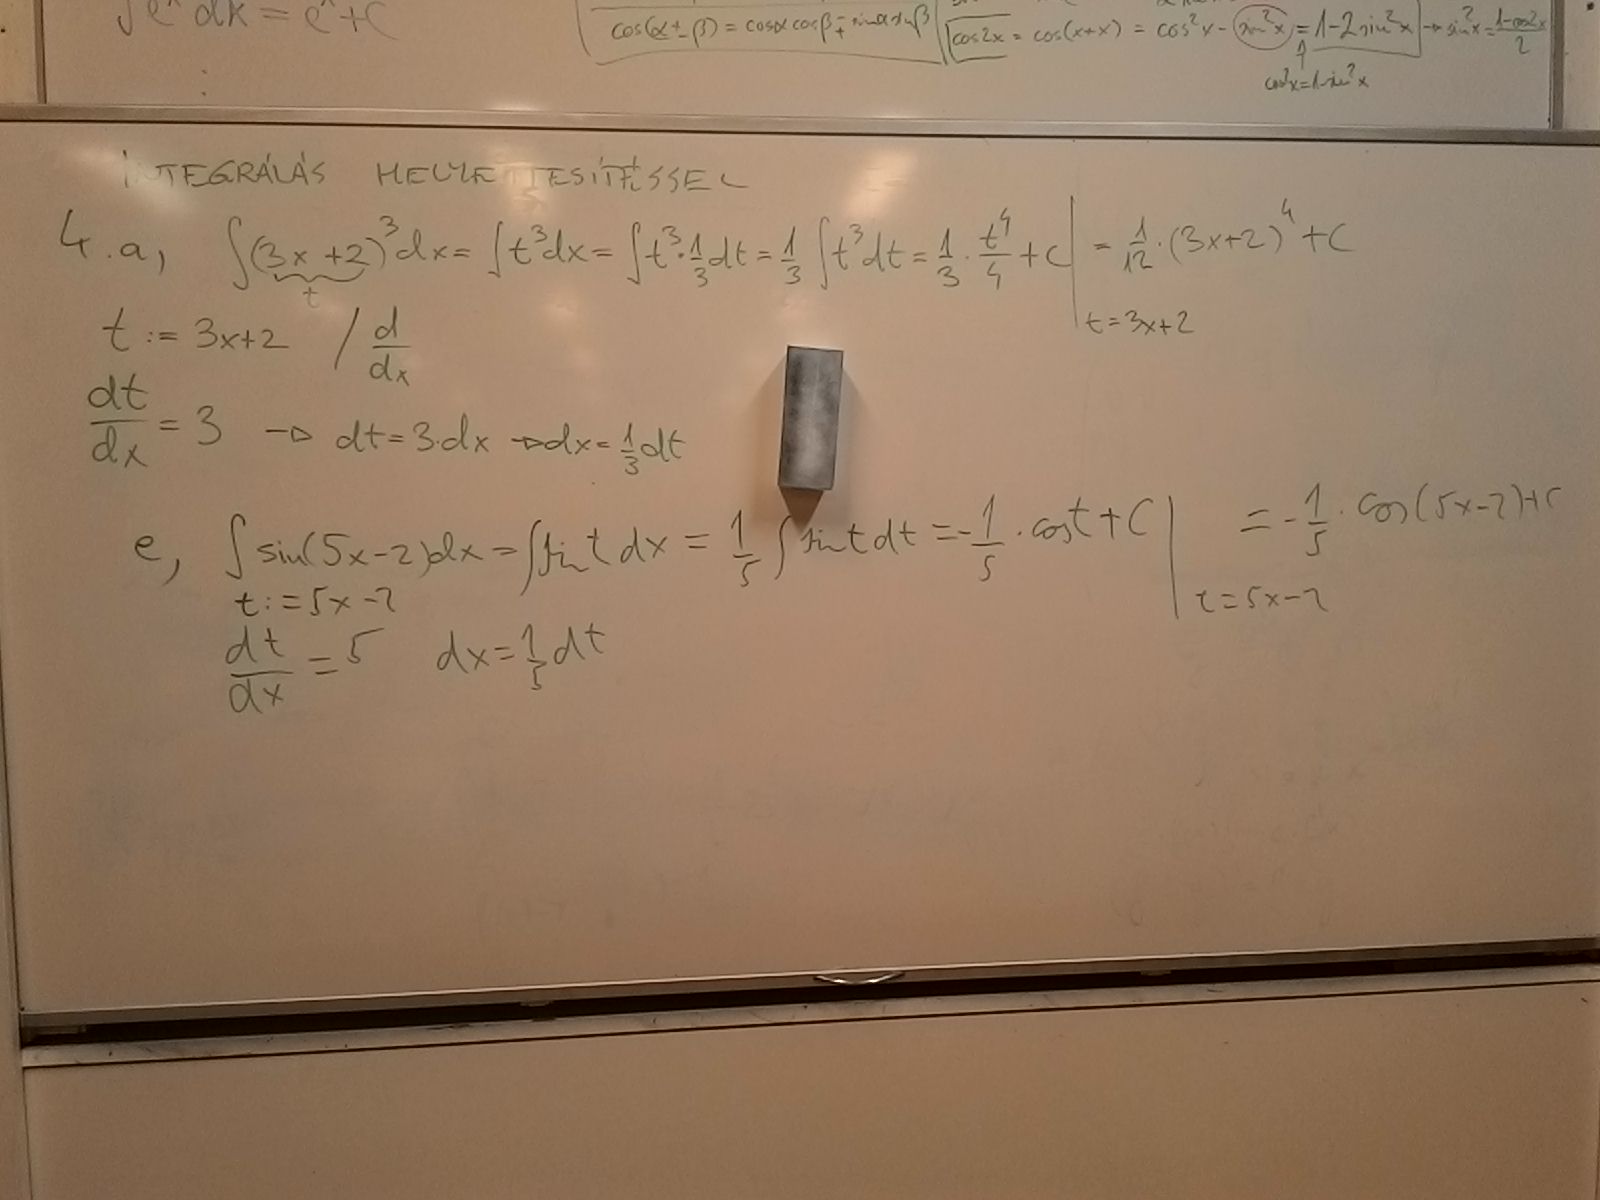 ∫eˣ dx = eˣ + C
cos(α ± β) = cosα cosβ ∓ sinα sinβ
cos2x = cos(x+x) = cos²x − sin²x = 1−2sin²x → sin²x = (1−cos2x)/2
cos²x = 1−sin²x
INTEGRÁLÁS HELYETTESÍTÉSSEL
4. a, ∫(3x+2)³dx = ∫t³dx = ∫t³·1/3 dt = 1/3 ∫t³dt = 1/3 · t⁴/4 + C | = 1/12 · (3x+2)⁴ + C
t
t = 3x+2
t := 3x+2 / d/dx
dt/dx = 3 → dt = 3·dx → dx = 1/3 dt
e, ∫sin(5x−2)dx = ∫sin t dx = 1/5 ∫sin t dt = −1/5 · cos t + C | = −1/5 · cos(5x−2)+C
t := 5x−2
t = 5x−2
dt/dx = 5 dx = 1/5 dt